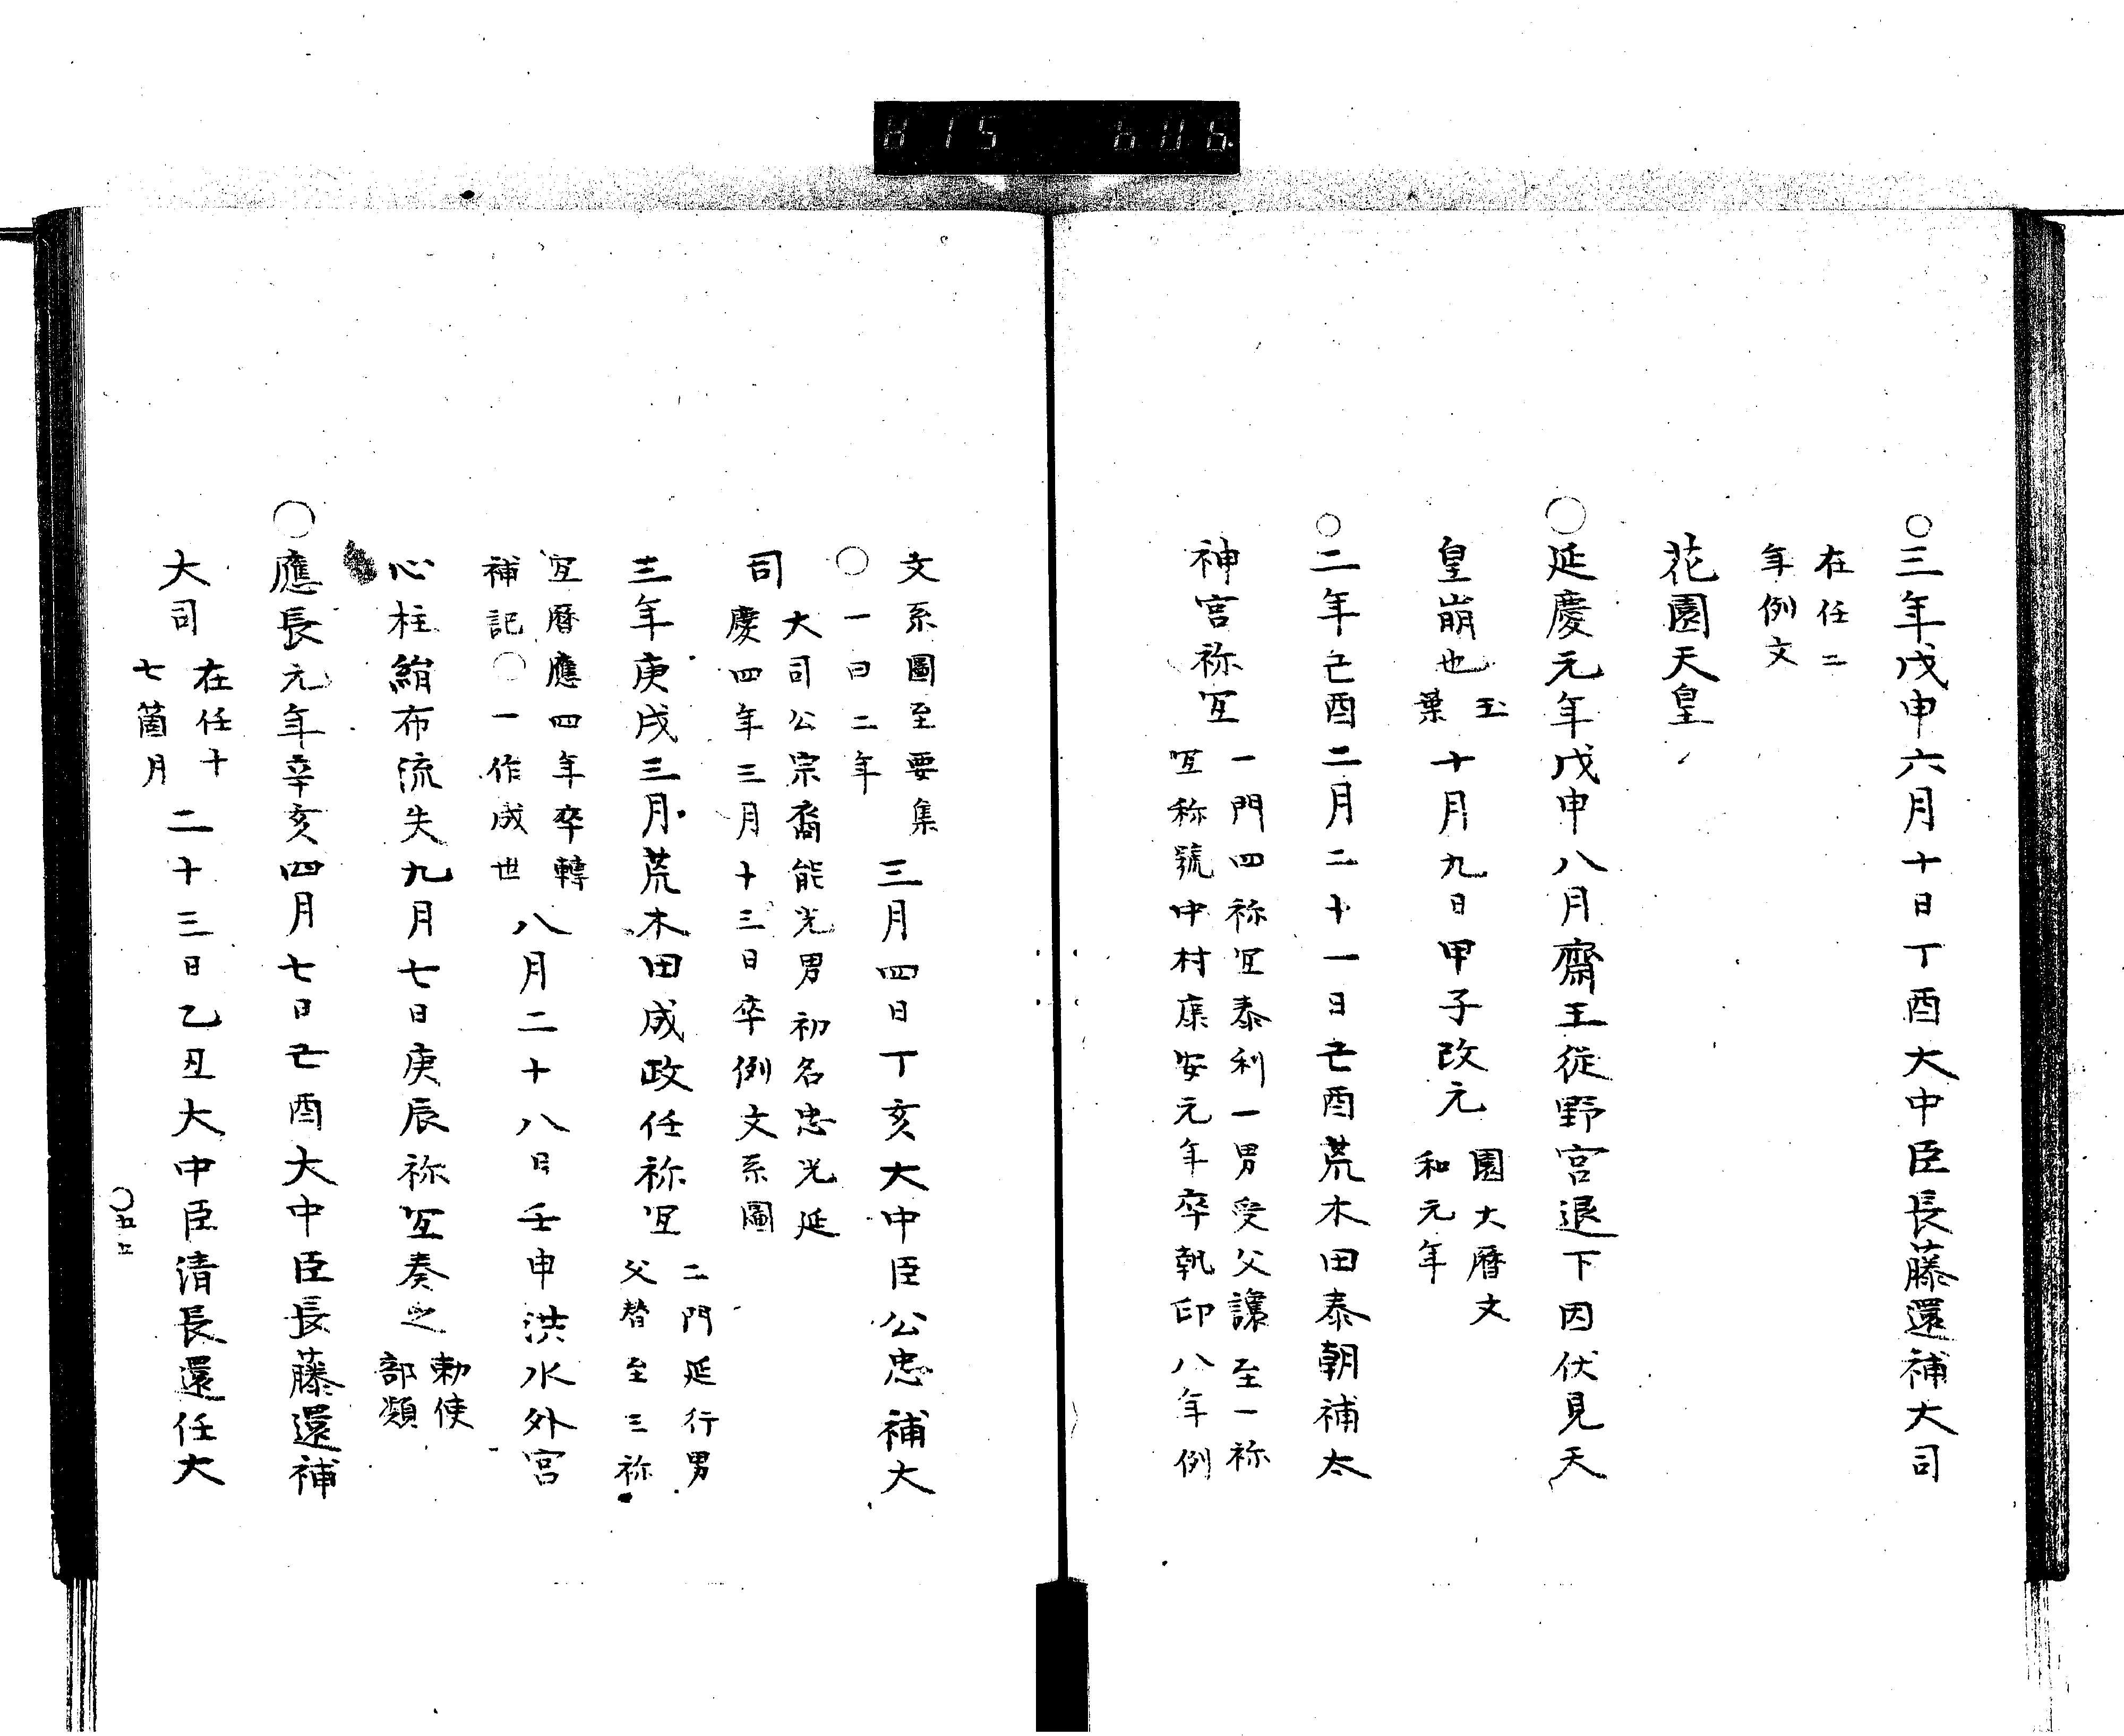 ○三年戊申六月十日丁酉大中臣長藤還補大司
在任二
年例文
花園天皇
○延慶元年戊申八月齋王從野宮退下因伏見天
皇崩也
玉
葉
十月九日甲子改元
園大曆文
和元年
○二年己酉二月二十一日己酉荒木田泰朝補太
神宮祢宜
一門四祢宜泰利一男受父讓至一祢
宜称號中村康安元年卒執印八年例
文系圖至要集
○一曰二年
三月四日丁亥大中臣公忠補大
司
大司公宗裔能光男初名忠光延
慶四年三月十三日卒例文系圖
三年庚戌三月荒木田成政任祢宜
二門延行男
父替至三祢
宜曆應四年卒轉
補記○一作成世
八月二十八日壬申洪水外宮
心柱絹布流失九月七日庚辰祢宜奏之
勅使
部類
○應長元年辛亥四月七日己酉大中臣長藤還補
大司
在任十
七箇月
二十三日乙丑大中臣清長還任大
815 606